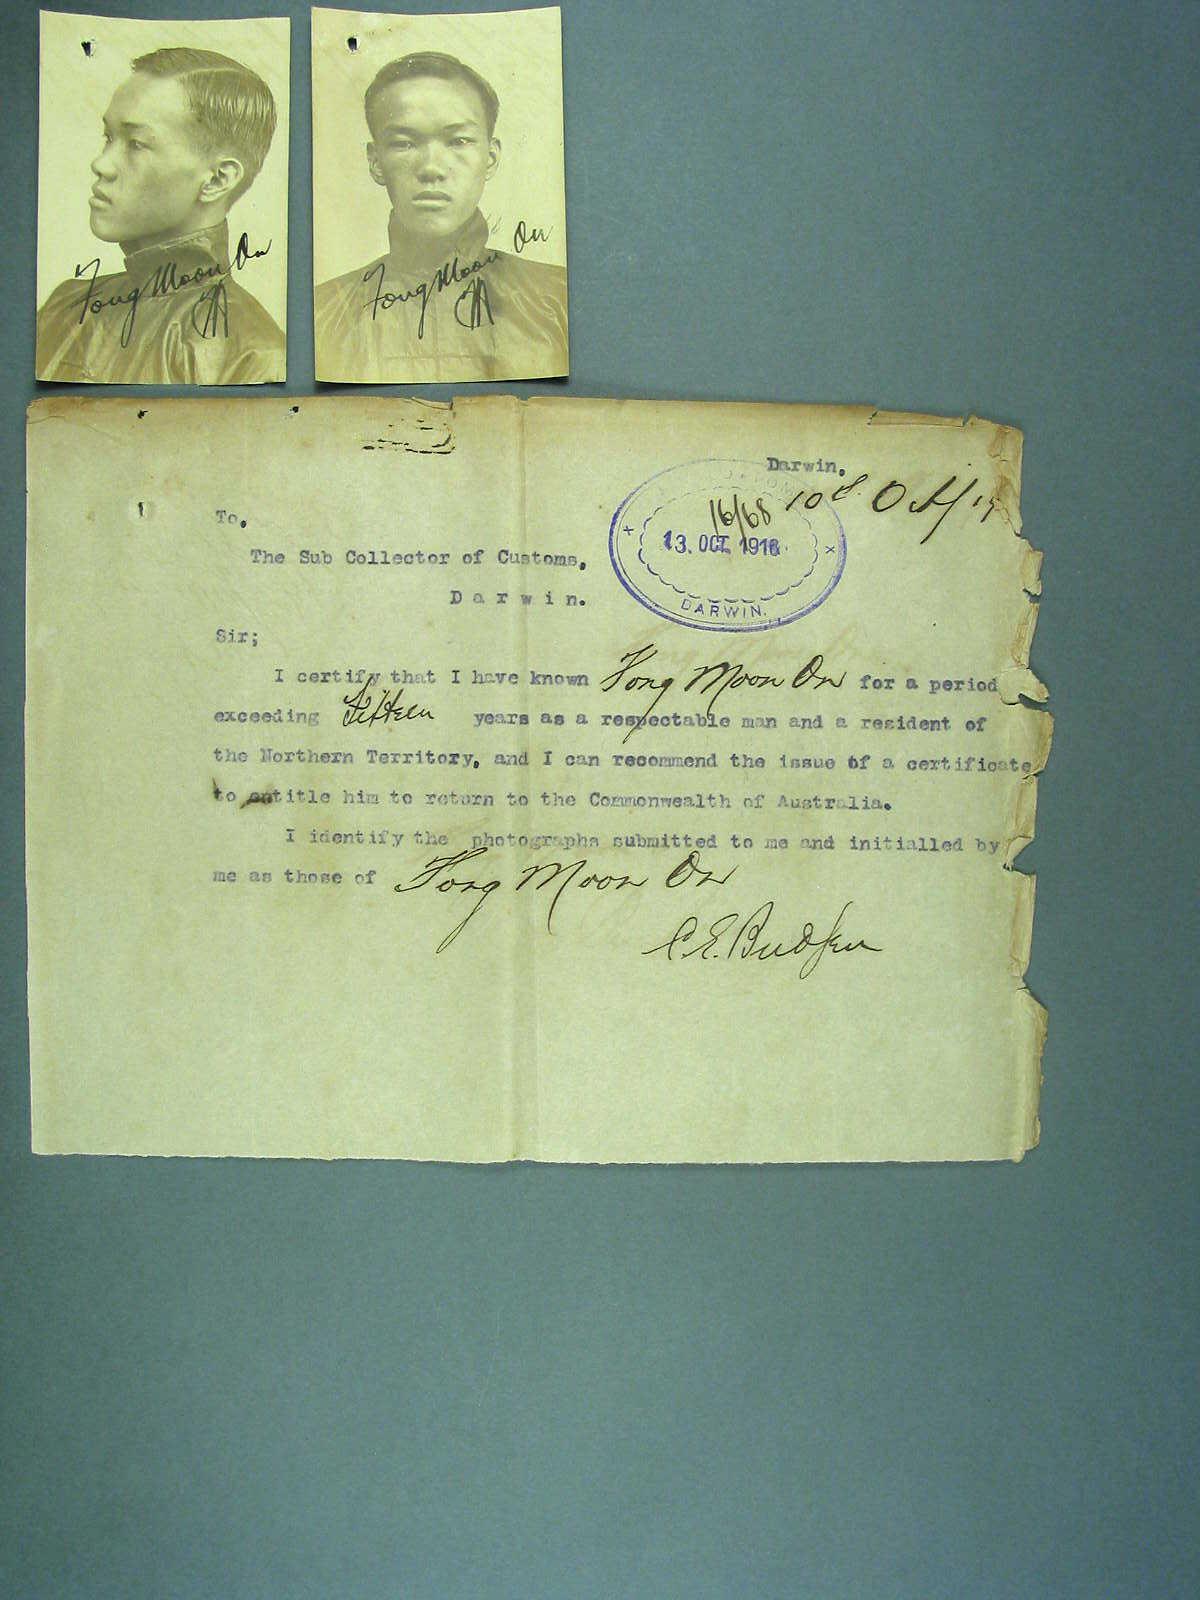 Fong Moon On
Fong Moon On
Darwin.
10th Oct/19
16/68
13. OCT. 1916
DARWIN.
To,
The Sub Collector of Customs,
Darwin.
Sir;
I certify that I have known Fong Moon On for a period
exceeding fifteen years as a respectable man and a resident of
the Northern Territory, and I can recommend the issue of a certificate
to entitle him to return to the Commonwealth of Australia.
I identify the photographs submitted to me and initialled by
me as those of Fong Moon On